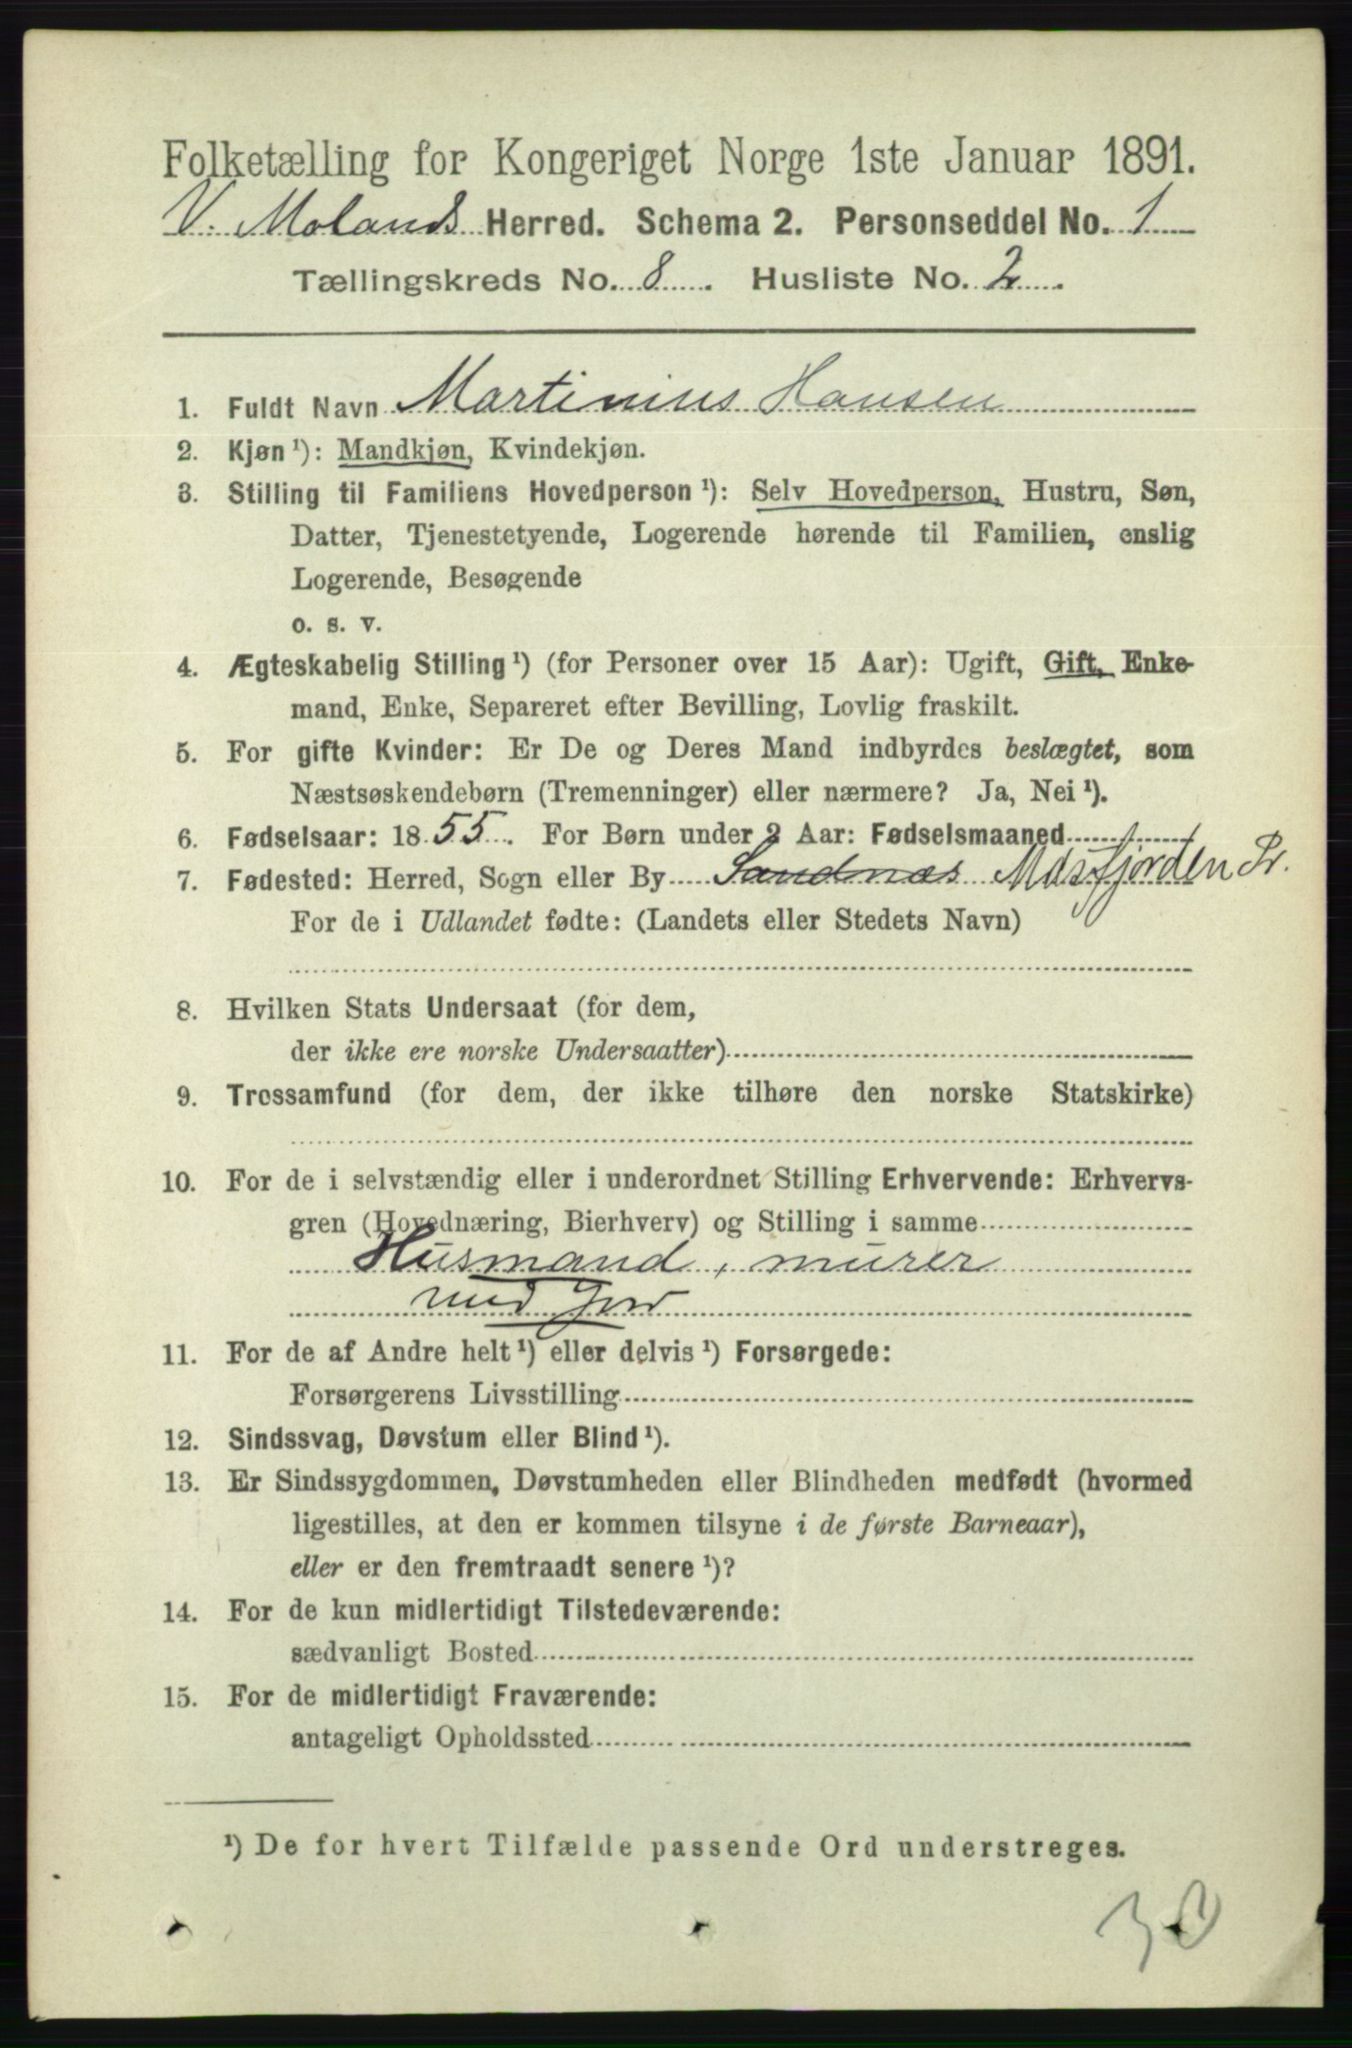 Folketælling for Kongeriget Norge 1ste Januar 1891.
V. Molands Herred. Schema 2. Personseddel No. 1
Tællingskreds No. 8. Husliste No. 2.
1. Fuldt Navn Martinius Hansen
2. Kjøn ¹): Mandkjøn, Kvindekjøn.
3. Stilling til Familiens Hovedperson ¹): Selv Hovedperson, Hustru, Søn,
Datter, Tjenestetyende, Logerende hørende til Familien, enslig
Logerende, Besøgende
o. s. v.
4. Ægteskabelig Stilling ¹) (for Personer over 15 Aar): Ugift, Gift, Enke-
mand, Enke, Separeret efter Bevilling, Lovlig fraskilt.
5. For gifte Kvinder: Er De og Deres Mand indbyrdes beslægtet, som
Næstsøskendebørn (Tremenninger) eller nærmere? Ja, Nei ¹).
6. Fødselsaar: 1855. For Børn under 2 Aar: Fødselsmaaned
7. Fødested: Herred, Sogn eller By Sandnæs Masfjorden Pr.
For de i Udlandet fødte: (Landets eller Stedets Navn)
8. Hvilken Stats Undersaat (for dem,
der ikke ere norske Undersaatter)
9. Trossamfund (for dem, der ikke tilhøre den norske Statskirke)
10. For de i selvstændig eller i underordnet Stilling Erhvervende: Erhvervs-
gren (Hovednæring, Bierhverv) og Stilling i samme
Husmand, murer
med Jord
11. For de af Andre helt ¹) eller delvis ¹) Forsørgede:
Forsørgerens Livsstilling
12. Sindssvag, Døvstum eller Blind ¹).
13. Er Sindssygdommen, Døvstumheden eller Blindheden medfødt (hvormed
ligestilles, at den er kommen tilsyne i de første Barneaar),
eller er den fremtraadt senere ¹)?
14. For de kun midlertidigt Tilstedeværende:
sædvanligt Bosted
15. For de midlertidigt Fraværende:
antageligt Opholdssted
¹) De for hvert Tilfælde passende Ord understreges.
30